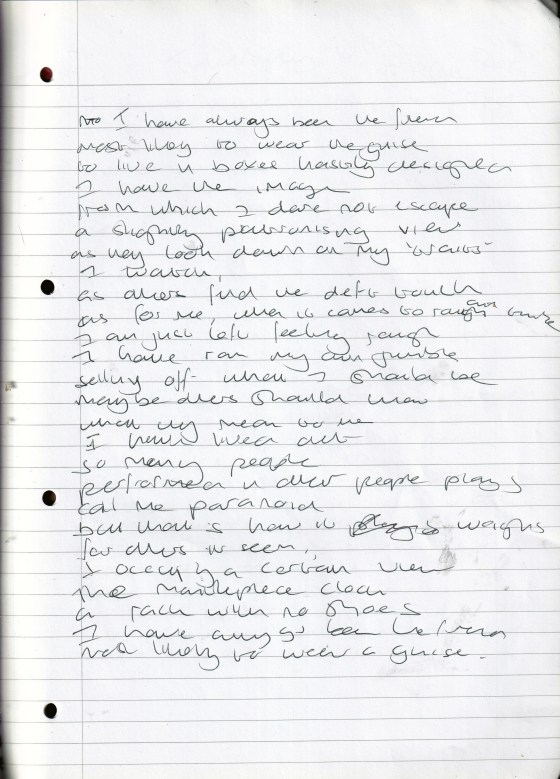 I have always been the friend
most likely to wear the guise
to live in boxes hastily designed
I have the image
from which I dare not escape
a slightly patronising view
as they look down on my
I watch,
as others find the deft touch
as for me, when it comes to
I am just left feeling rough
I have ran my own
selling off when I should be
maybe others should know
what they mean to me
I have lived out
so many people
performed in other people plays
call me paranoid
but that is how it weighs
for others it seem,
I occupy a certain view
the mantlepiece clock
a rack with no shoes
I have always been the friend
most likely to wear a guise.